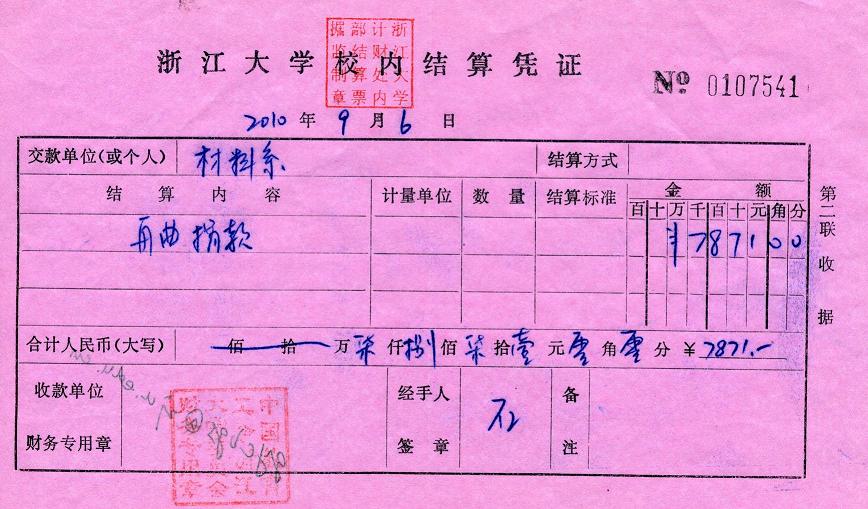 浙江大学计财处内部结算票据监制章
浙江大学校内结算凭证
№ 0107541
2010 年 9 月 6 日
交款单位(或个人) 材料系 结算方式
结算内容 计量单位 数量 结算标准 金额
百十万千百十元角分
舟曲捐款 ¥787100
合计人民币(大写) 佰 拾 万 柒 仟 捌 佰 柒 拾 壹 元 零 角 零 分 ¥7871.-
收款单位 财务专用章 经手人 签章 备注
第二联收据